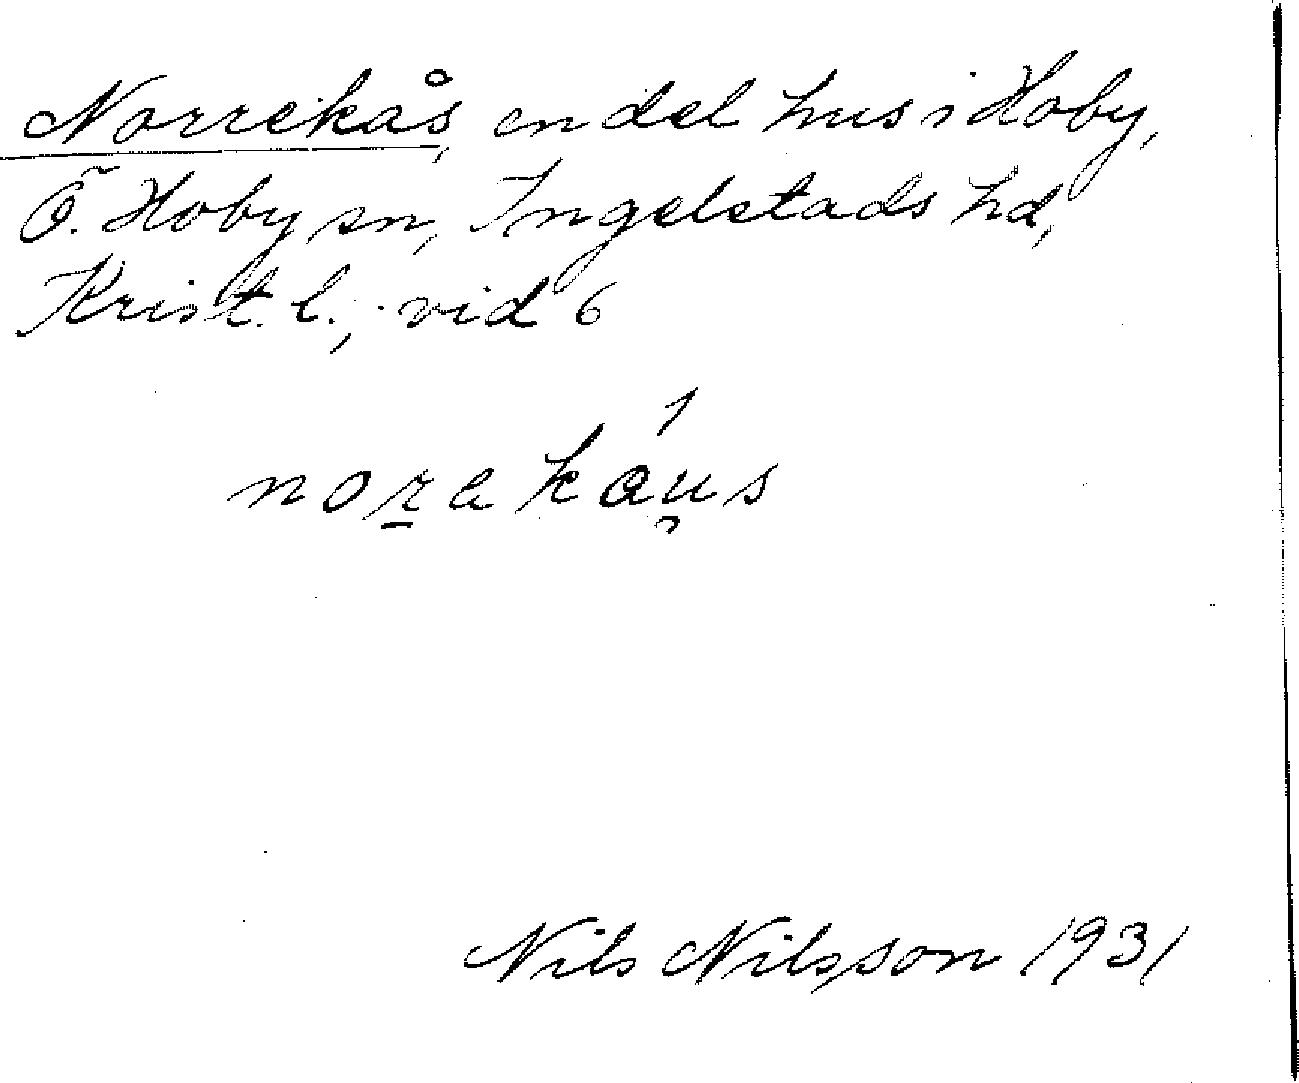 Norrekås, en del hus i Hoby,
Ö. Hoby sn, Ingelstads hd,
Krist. l.; vid 6
norakáu̯s
Nils Nilsson 1931